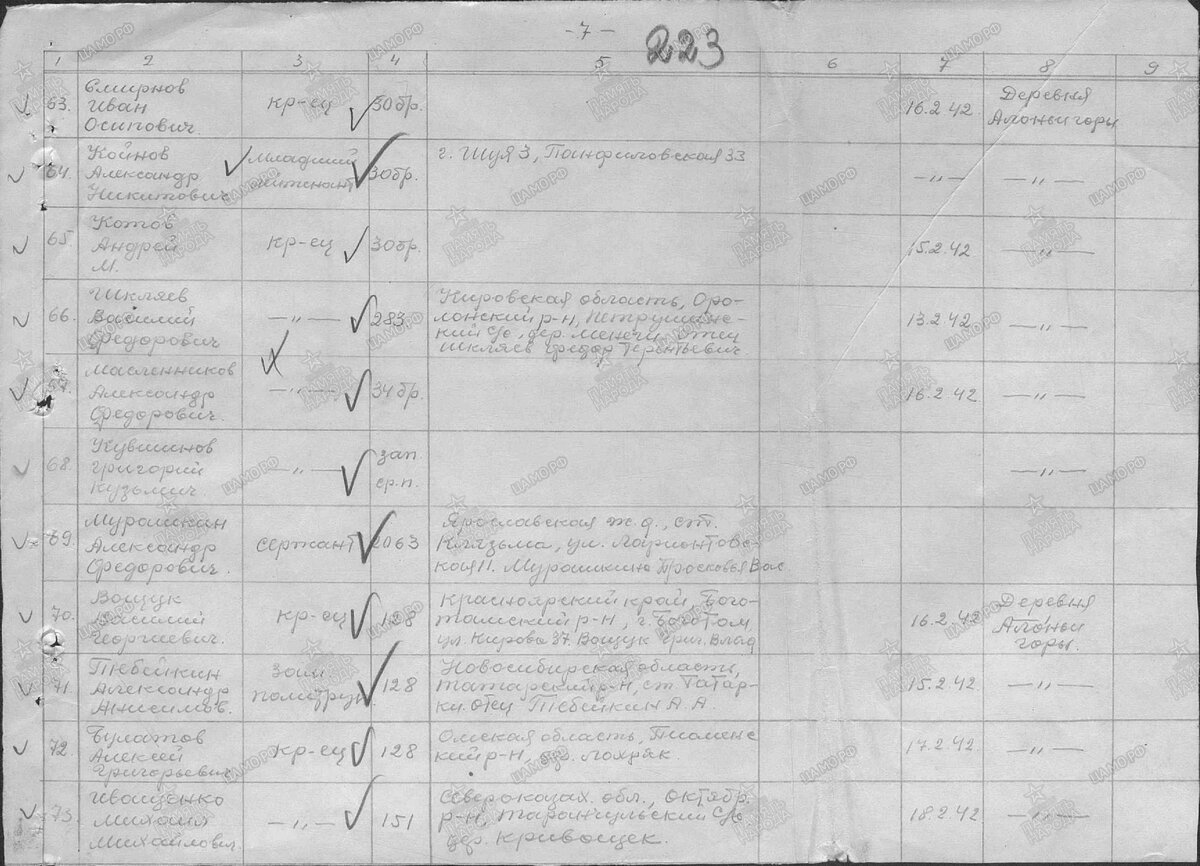 -7-
223
1 2 3 4 5 6 7 8 9
63. Смирнов Иван Осипович. кр-ец 30бр. 16.2.42 Деревня Алоньи горы
64. Койнов Александр Никитович младший лейтенант 30бр. г. Шуя 3, Панфиловская 33 -〃- -〃-
65 Котов Андрей М. кр-ец 30бр. 15.2.42 -〃-
66. Шкляев Василий Федорович -〃- 283 Кировская область, р-н, с/с, дер. отец Шкляев Федор Терентьевич 13.2.42 -〃-
Масленников Александр Федорович. -〃- 34бр. 16.2.42 -〃-
68. Кувшинов Григорий Кузьмич -〃- зап. ср.п. -〃-
69. Мурашкин Александр Федорович. сержант 2063 Ярославская ж.д., ст. Клязьма, ул. Мурашкина Просковья Вас.
70. Вощук Василий Георгиевич. кр-ец 128 Красноярский край Бого- тольский р-н, г. Боготол ул. Кирова 37. Вощук Григ. Влад 16.2.42 Деревня Алоньи горы.
71. Тебейкин Александр Анисимов. зам. политрук 128 Новосибирская область, Татарский р-н, ст. Татар- ка Тебейкин А.А. 15.2.42 -〃-
72. Булатов Алексей Григорьевич кр-ец 128 Омская область, Тюменс кий р-н, 17.2.42. -〃-
73. Иващенко Михаил Михайлович. -〃- 151 Североказах. обл., Октябр. р-н, с/с дер. Кривощек. 18.2.42 -〃-
ЦАМО.РФ
ПАМЯТЬ НАРОДА